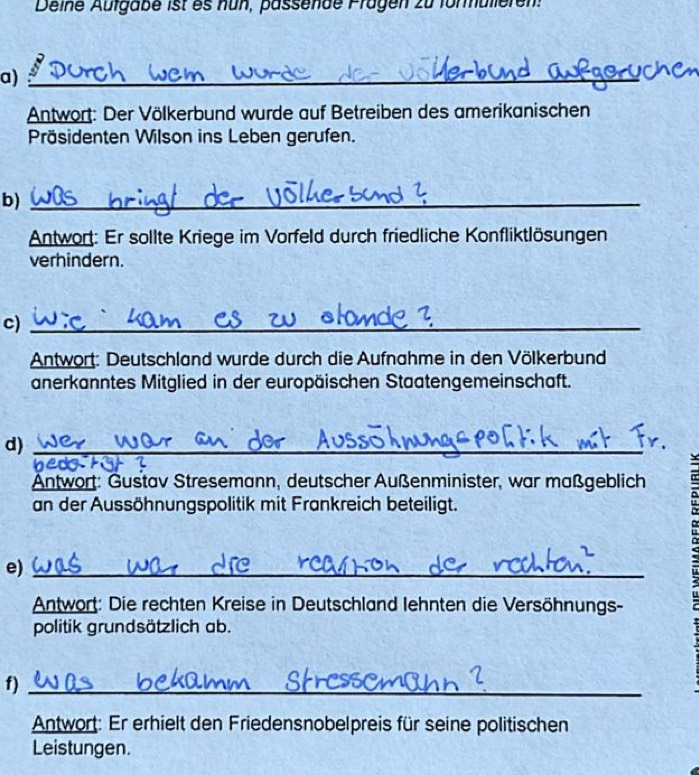 Deine Aufgabe ist es nun, passende Fragen zu formulieren!
a) Durch wem wurde der Völkerbund aufgeruchen
Antwort: Der Völkerbund wurde auf Betreiben des amerikanischen
Präsidenten Wilson ins Leben gerufen.
b) was bringt der Völkerbund?
Antwort: Er sollte Kriege im Vorfeld durch friedliche Konfliktlösungen
verhindern.
c) Wie kam es zu stande?
Antwort: Deutschland wurde durch die Aufnahme in den Völkerbund
anerkanntes Mitglied in der europäischen Staatengemeinschaft.
d) Wer war an der Aussöhnungspolitik mit Fr.
Antwort: Gustav Stresemann, deutscher Außenminister, war maßgeblich
an der Aussöhnungspolitik mit Frankreich beteiligt.
e) was war die reaktion der rechten?
Antwort: Die rechten Kreise in Deutschland lehnten die Versöhnungs-
politik grundsätzlich ab.
f) was bekamm Stressemann?
Antwort: Er erhielt den Friedensnobelpreis für seine politischen
Leistungen.
DIE WEIMARER REPUBLIK